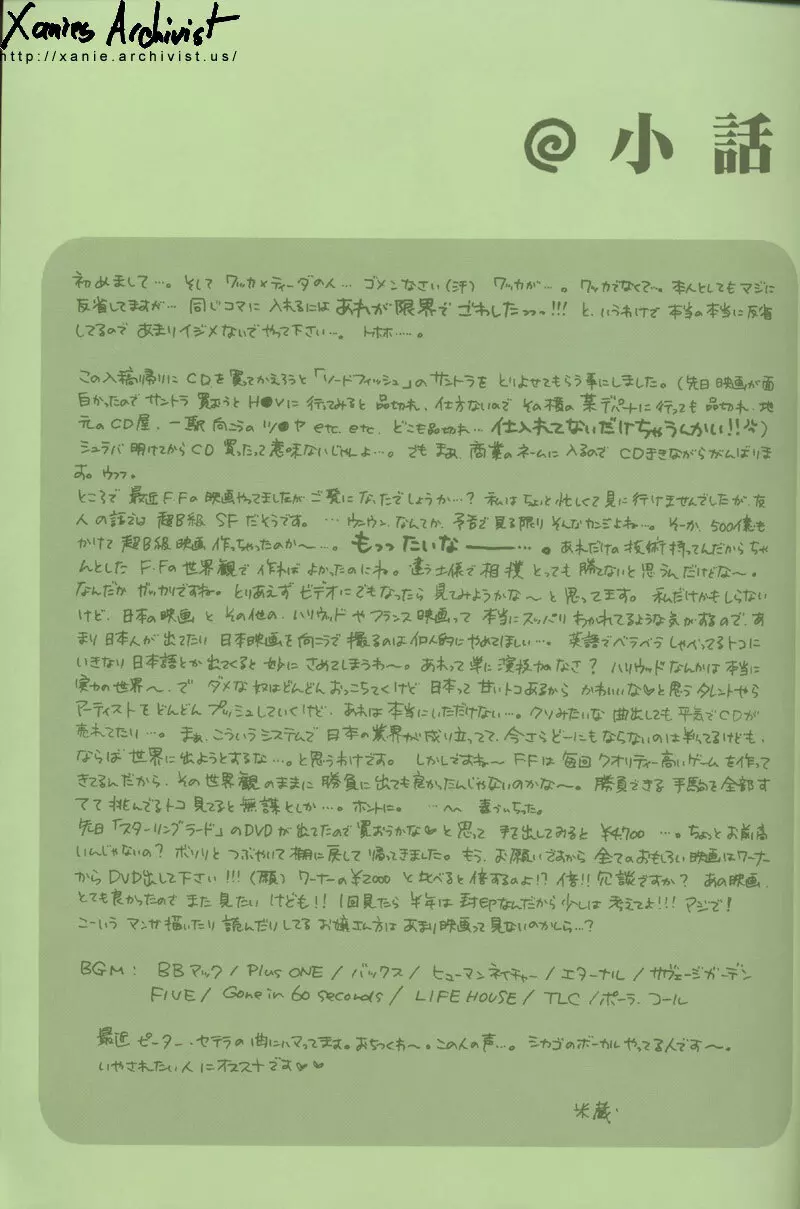 Xanies Archivist
http://xanie.archivist.us/
@ 小話
初めまして…。そして ワッカ×ティーダの人… ゴメンなさい(汗) ワッカが…。ワッカでなくて〜。本人としてもマジに
反省してますが… 同じコマに 入れるには あれが限界で ごわしたっっっ!!! と、いうわけで 本当の本当に反省
してるので あまりイジメないでやって下さい…。トホホ……。
この入稿帰りに CDを買ってかえろうと「ソードフィッシュ」のサントラを とりよせてもらう事にしました。(先日 映画が面
白かったので サントラ 買おうと H●Vに行ってみると 品切れ、仕方ないので その横の 某デパートに行っても 品切れ、地
元のCD屋、一駅向こうの ツ●ヤ etc. etc. どこも品切れ… 仕入れてないだけちゃうんかい!!)
シュラバ 明けてから CD 買ったって意味ないじゃんよ…。でも まぁ、商業のネームに入るので CDききながらがんばりま
す。ウフフ。
ところで 最近 F.Fの 映画やってましたが ご覧に なったでしょうか…? 私はちょっと忙しくて見に行けませんでしたが、友
人の話では 超B級 SFだそうです。…ウンウン、なんてか、予告で見る限り そんなカンジよね…。そーか、500億も
かけて 超B級映画 作っちゃったのか〜…。もっったいな———…。あれだけの技術持ってんだからちゃ
んとした F.Fの世界観で 作れば よかったのにね。違う土俵で 相撲 とっても 勝てないと 思うんだけどな〜。
なんだか ガッカリですね。とりあえず ビデオにでもなったら 見てみようかな〜 と 思ってます。私だけかもしらない
けど、日本の映画 と その他の、ハリウッド や フランス映画って 本当に スッパリ わかれてるような気がするので、あ
まり 日本人が 出てたり 日本映画を 向こうで 撮るのは 個人的にやめてほしい…。英語でベラベラ しゃべってるトコに
いきなり 日本語とか 出てくると 妙に さめてしまうわ〜。あれって 単に 演技力のなさ? ハリウッドなんかは 本当に
実力の世界〜。で ダメな奴はどんどん おっこちてくけど 日本って 甘いトコあるから かわいいな♥と思う タレントやら
アーティストを どんどん プッシュしていくけど、あれは 本当にいただけない…。クソみたいな 曲出しても 平気でCDが
売れてたり…。まぁ、こういうシステムで 日本の業界が成り立ってて、今さらどーにもならないのは判ってるけども、
ならば 世界に 出ようとするな…。と思うわけです。しかしですね〜 FFは 毎回 クオリティー高いゲームを作って
きてるんだから、その世界観のままに 勝負に 出ても 良かったんじゃないのかな〜。勝負できる 手駒を 全部 す
てて 挑んでるトコ 見てると 無謀としか…。ホントに。…へへ 毒づいちった。
先日「スターリングラード」のDVDが 出てたので 買おうかな♥ と思って 手を出してみると ¥4,700 …。ちょっとお前 高
いんじゃないの? ボソリと つぶやいて 棚に戻して 帰ってきました。もう、お願いですから 全てのおもしろい映画はワーナー
から DVD出して下さい!!!(願) ワーナーの¥2000 と比べると 倍するのよ!? 倍!! 冗談ですか? あの映画、
とても良かったので また 見たい けども!! 1回見たら 半年は 封印なんだから 少しは 考えてよ!!! マジで!
こーいう マンガ描いたり 読んだりしてる お嬢さん方は あまり映画って 見ないのかしら…?
BGM: BBマック / Plus ONE / バックス / ヒューマンネイチャー / エターナル / サヴェージガーデン
FIVE / Gone in 60 seconds / LIFE HOUSE / TLC / ポーラ.コール
最近 ピーター・セテラの曲にハマってます。おちつくわ〜。この人の声…。シカゴのボーカルやってる人です〜。
いやされたい人に オススメです♥♥
米蔵.